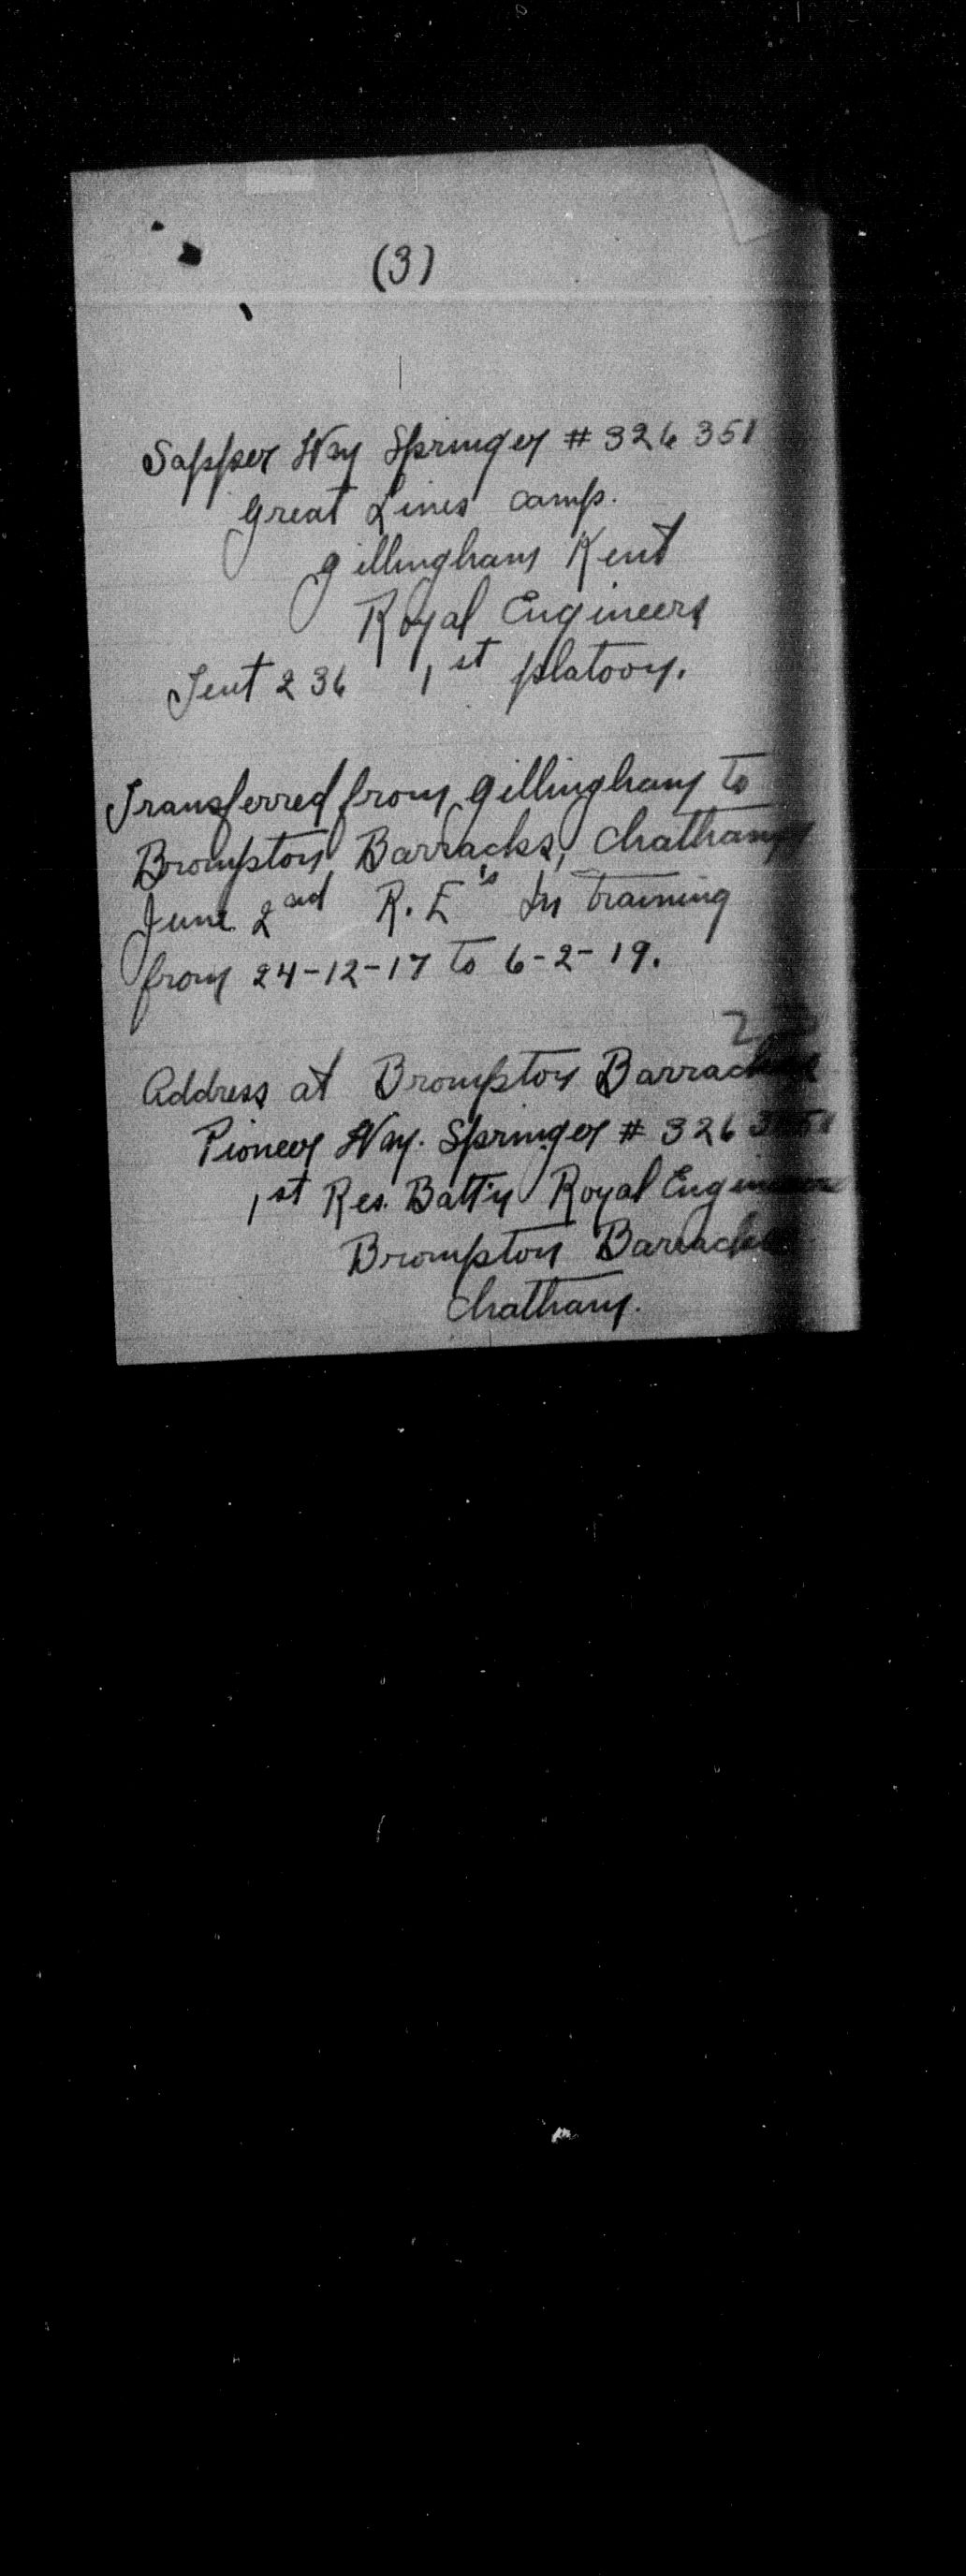 (3)
Sapper Wm Springer # 326351
Great Lines Camp.
Gillingham Kent
Royal Engineers
Tent 236 1st platoon.
Transferred from Gillingham to
Brompton Barracks, Chatham
June 2nd R.E's In training
from 24-12-17 to 6-2-19.
Address at Brompton Barracks
Pioneer Wm. Springer # 326351
1st Res. Batt'n Royal Engineers
Brompton Barracks
Chatham.